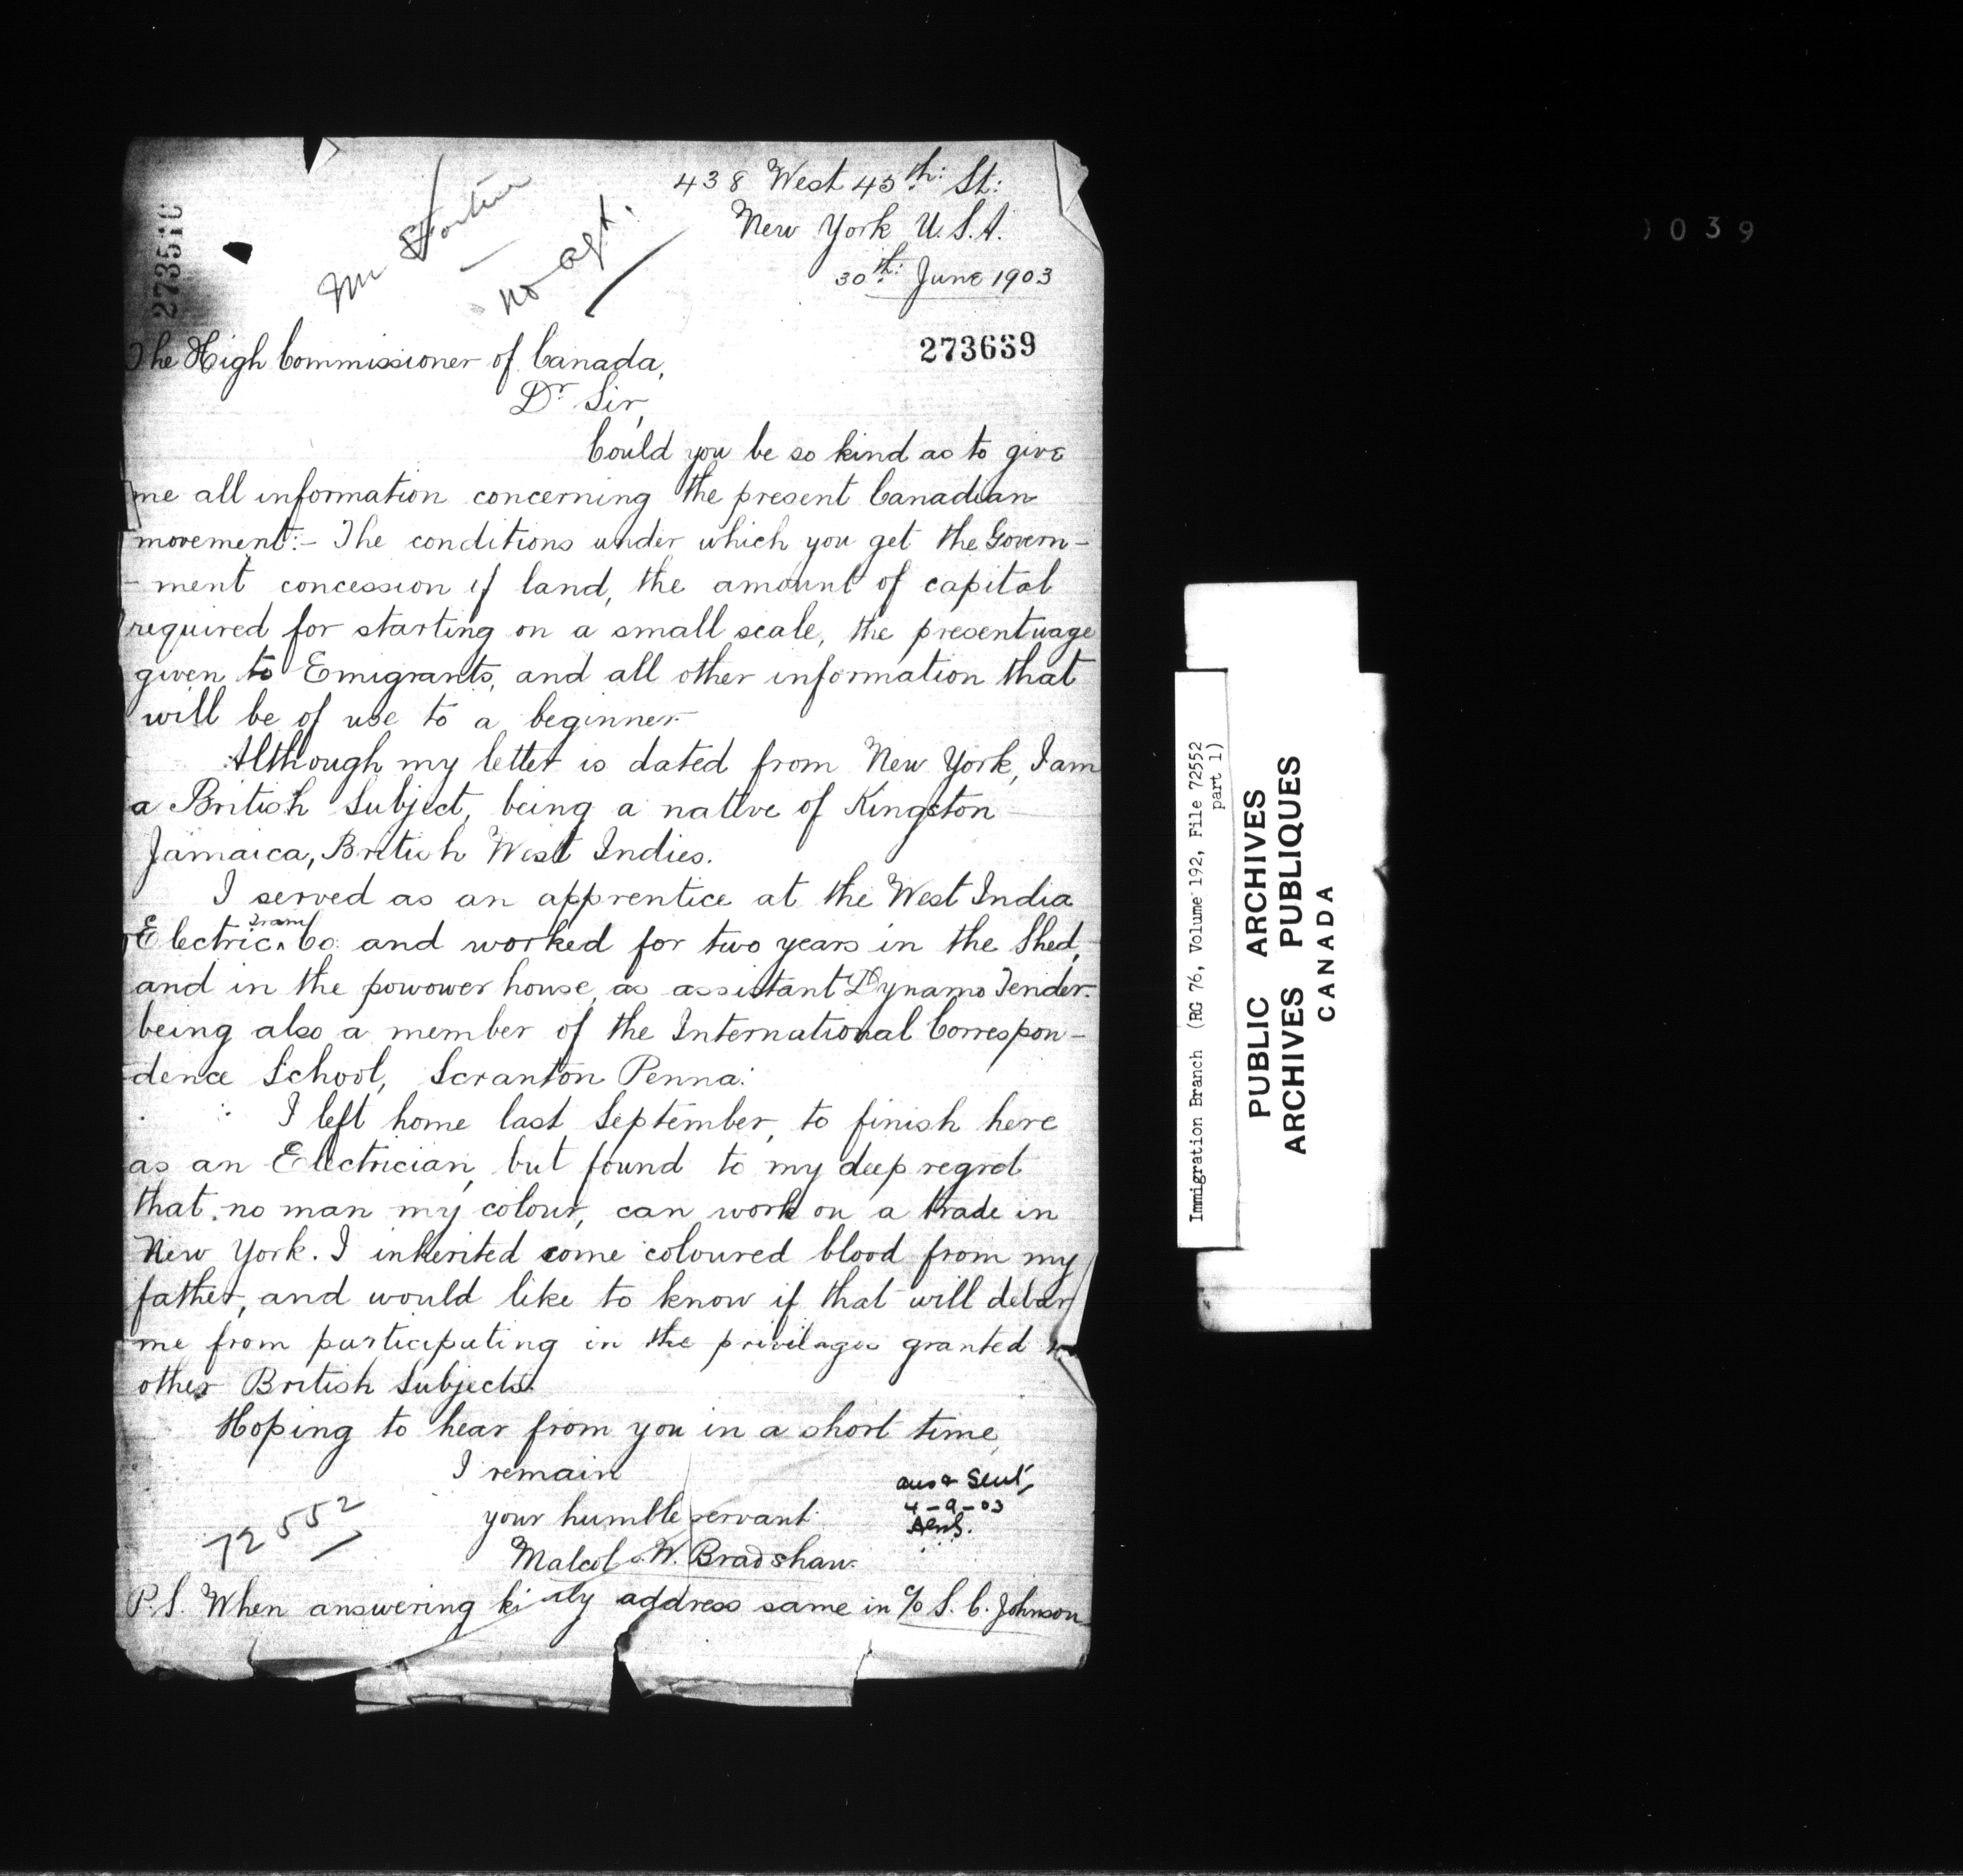 438 West 45th: St:
New York U.S.A.
30th: June 1903
Mr Fortier
no agt.
273639
The High Commissioner of Canada,
Dr Sir,
Could you be so kind as to give
me all information concerning the present Canadian
movement:- The conditions under which you get the Govern-
-ment concession of land, the amount of capital
required for starting on a small scale, the present wage
given to Emigrants, and all other information that
will be of use to a beginner
Although my letter is dated from New York, I am
a British Subject, being a native of Kingston
Jamaica, British West Indies.
I served as an apprentice at the West India
Electric Tram Co. and worked for two years in the Shed,
and in the powower house as assistant Dynamo Tender.
being also a member of the International Correspon-
-dence School, Scranton Penna:
I left home last September, to finish here
as an Electrician, but found to my deep regret
that no man my colour, can work on a trade in
New York. I inherited some coloured blood from my
father, and would like to know if that will debar
me from participating in the privilages granted to
other British Subjects.
Hoping to hear from you in a short time,
I remain
your humble servant
Malcol W. Bradshaw.
ans & sent,
4-9-03
72552
P.S. When answering kindly address same in c/o S. C. Johnson
Immigration Branch (RG 76, Volume 192, File 72552
part 1)
PUBLIC ARCHIVES
ARCHIVES PUBLIQUES
CANADA
039